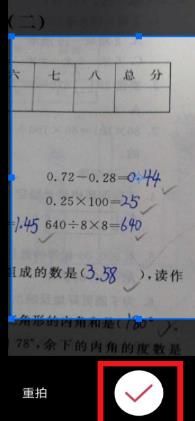 (二)
六 七 八 总分
0.72-0.28=0.44
0.25×100=25
=1.45 640÷8×8=640
组成的数是(3.58),读作
角形的内角和是(180°)。
78°,余下的内角的度数是
重拍